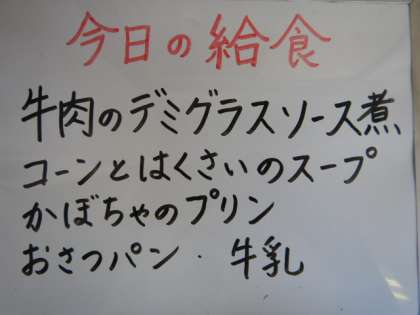 今日の給食
牛肉のデミグラスソース煮
コーンとはくさいのスープ
かぼちゃのプリン
おさつパン・牛乳